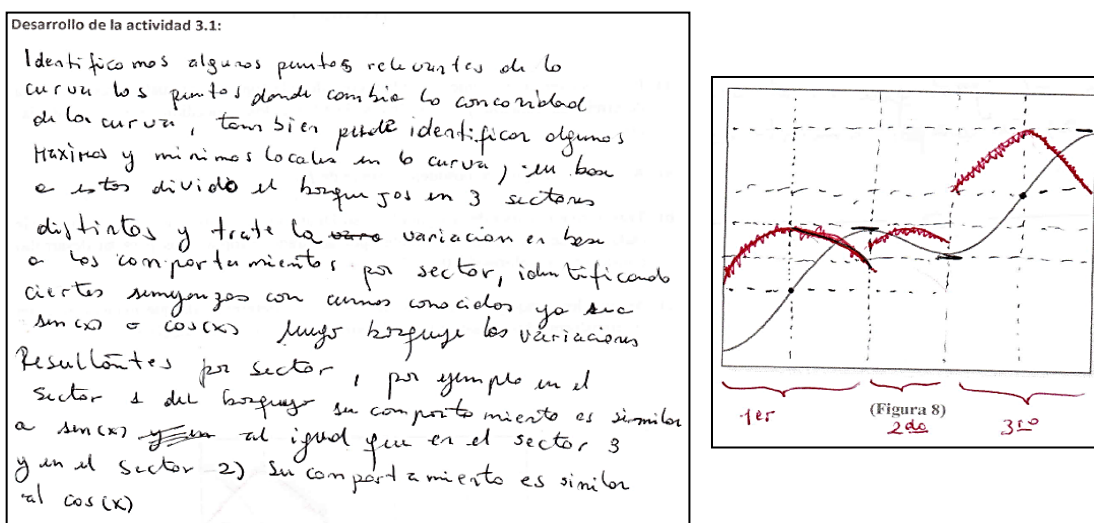 Desarrollo de la actividad 3.1:
Identificamos algunos puntos relevantes de la
curva los puntos donde cambia la concavidad
de la curva, tambien pude identificar algunos
Maximos y minimos locales en la curva, en base
a estos divido el bosquejos en 3 sectores
distintos y trate la variacion en base
a los comportamientos por sector, identificando
ciertas semejanzas con curvas conocidas ya sea
sen(x) o cos(x) luego bosqueje las variaciones
Resultantes por sector, por ejemplo en el
sector 1 del bosquejo su comportamiento es similar
a sen(x) al igual que en el sector 3
y en el sector 2) su comportamiento es similar
al cos(x)
1er
(Figura 8)
2do
3ro